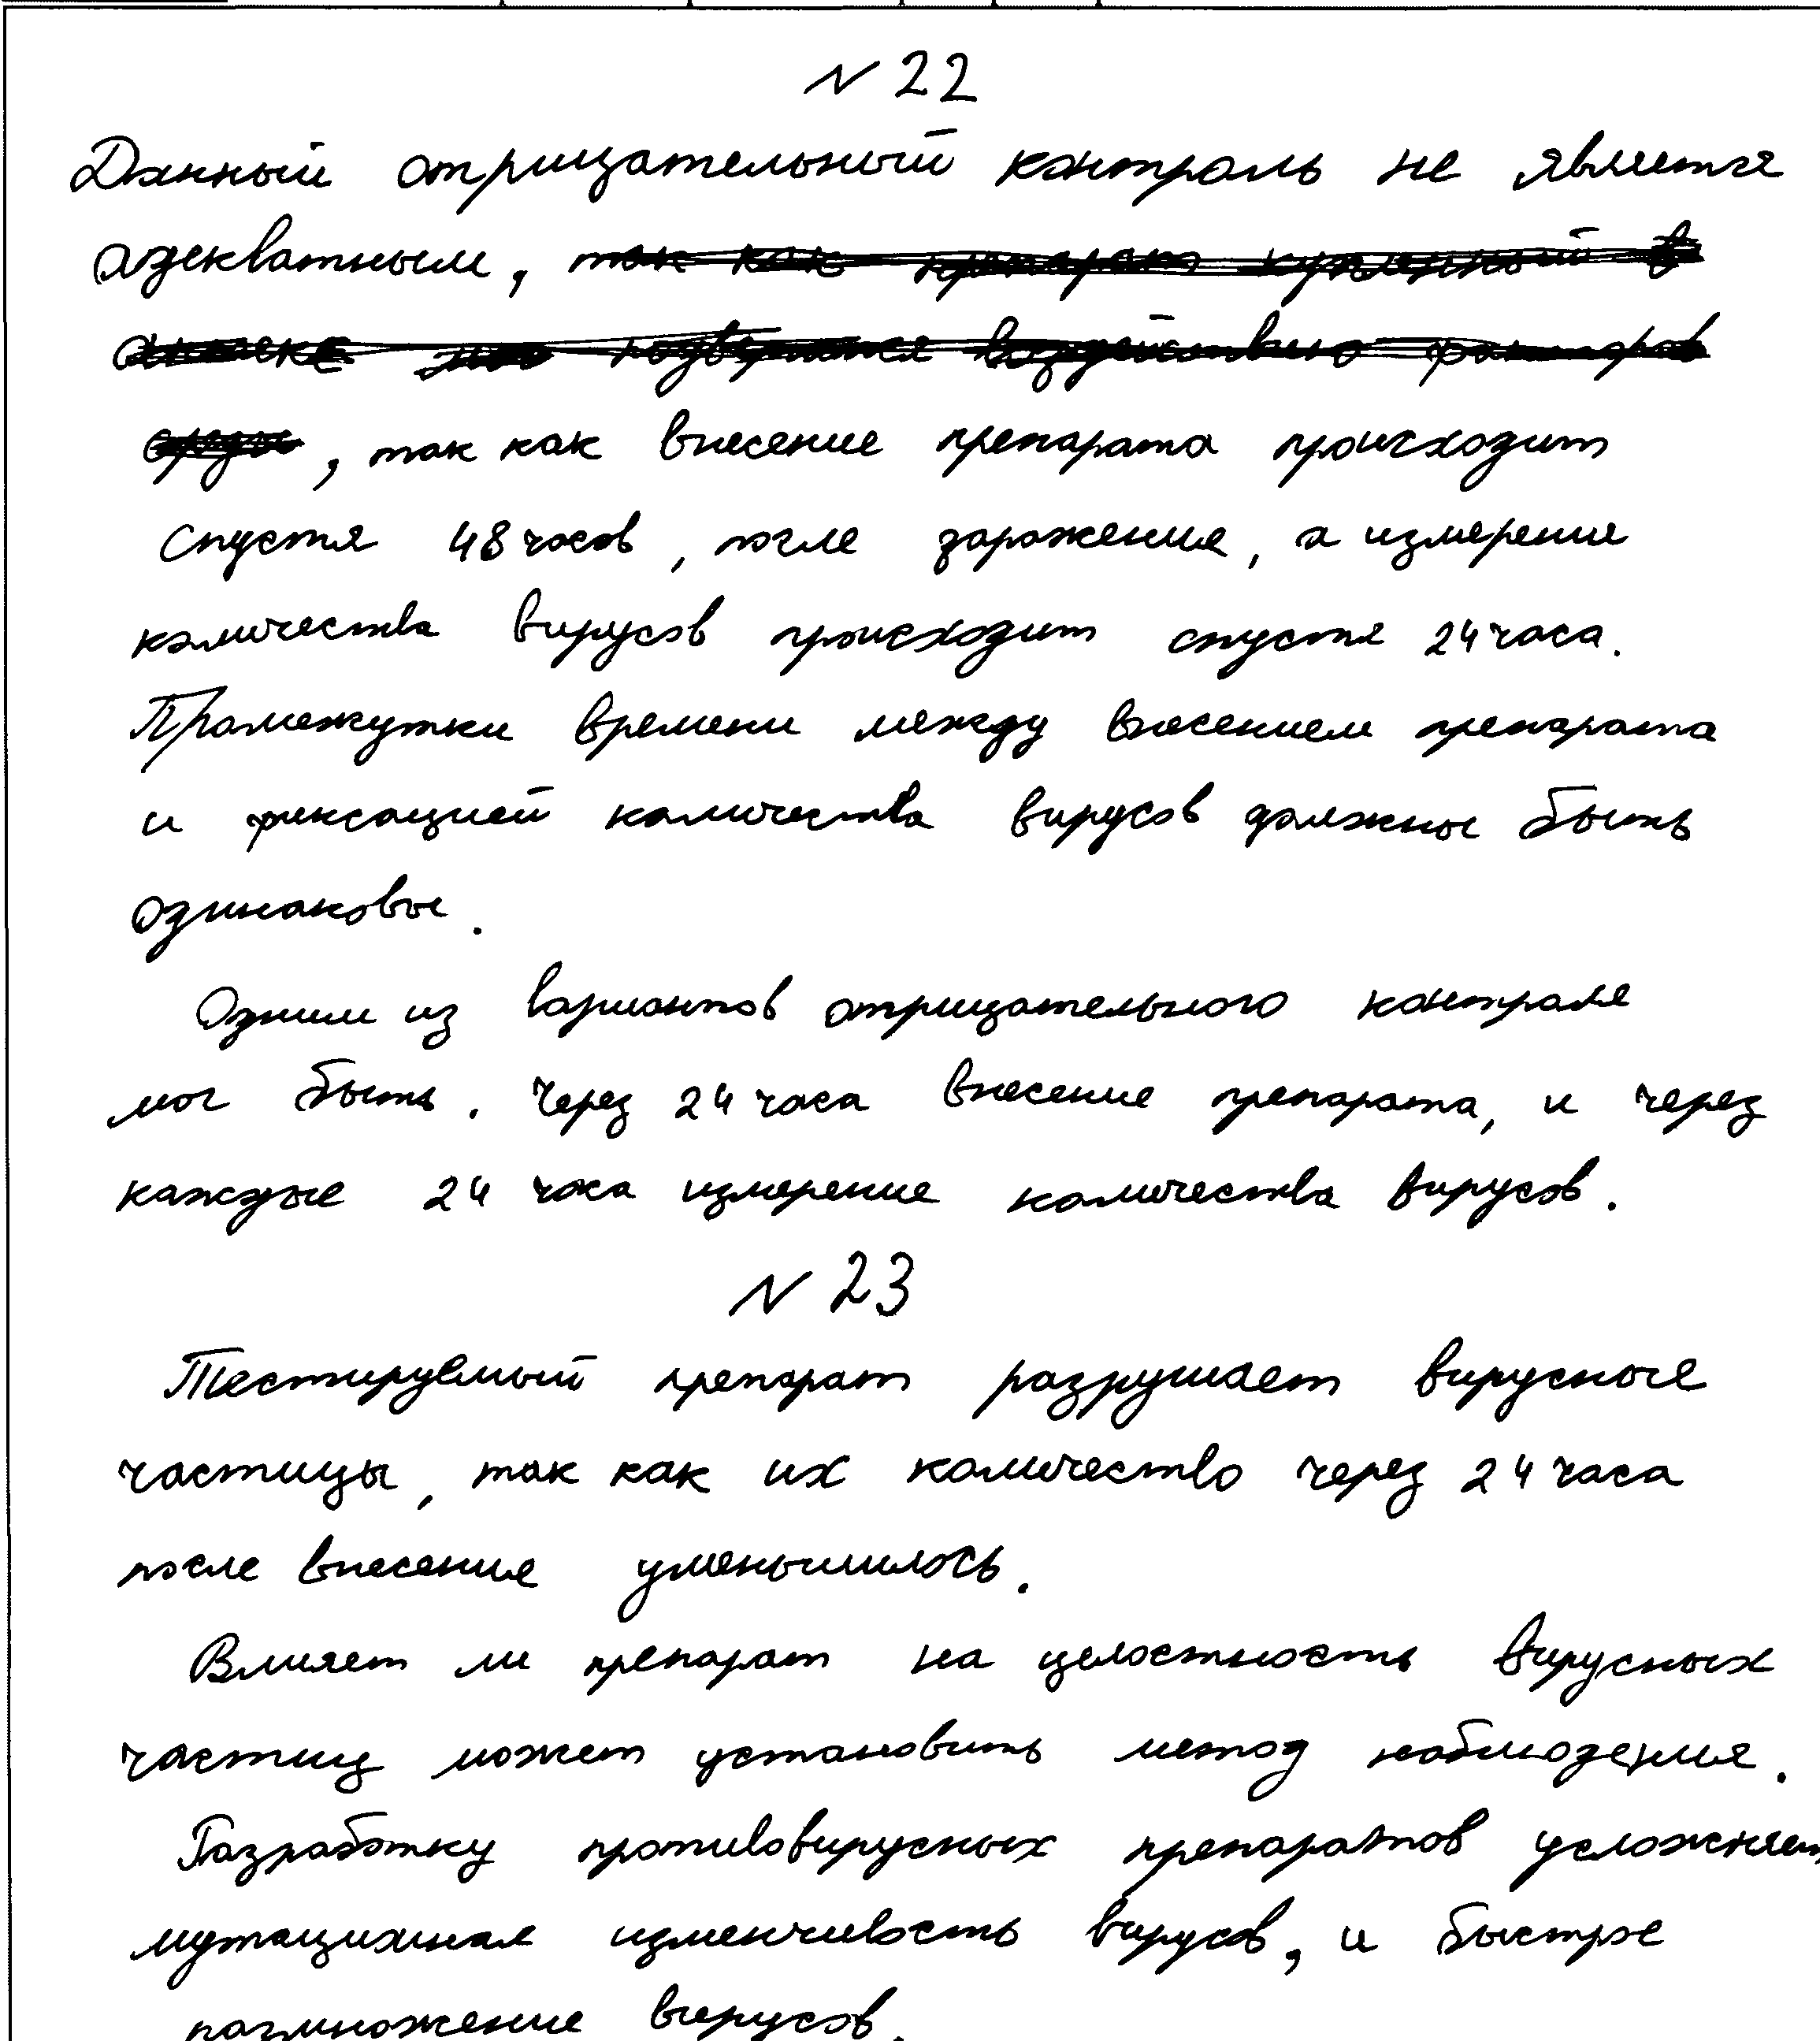 N 22
Данный отрицательный контроль не является
адекватным, так как препарат купленный в
аптеке не подвергался воздействию факторов
среды, так как внесение препарата происходит
спустя 48 часов, после заражения, а измерение
количества вирусов происходит спустя 24 часа.
Промежутки времени между внесением препарата
и фиксацией количества вирусов должны быть
одинаковы.
Одним из вариантов отрицательного контроля
мог быть. Через 24 часа внесение препарата, и через
каждые 24 часа измерение количества вирусов.
N 23
Тестируемый препарат разрушает вирусные
частицы, так как их количество через 24 часа
после внесения уменьшилось.
Влияет ли препарат на целостность вирусных
частиц может установить метод наблюдения.
Разработку противовирусных препаратов усложняет
мутационная изменчивость вирусов, и быстрое
размножение вирусов.